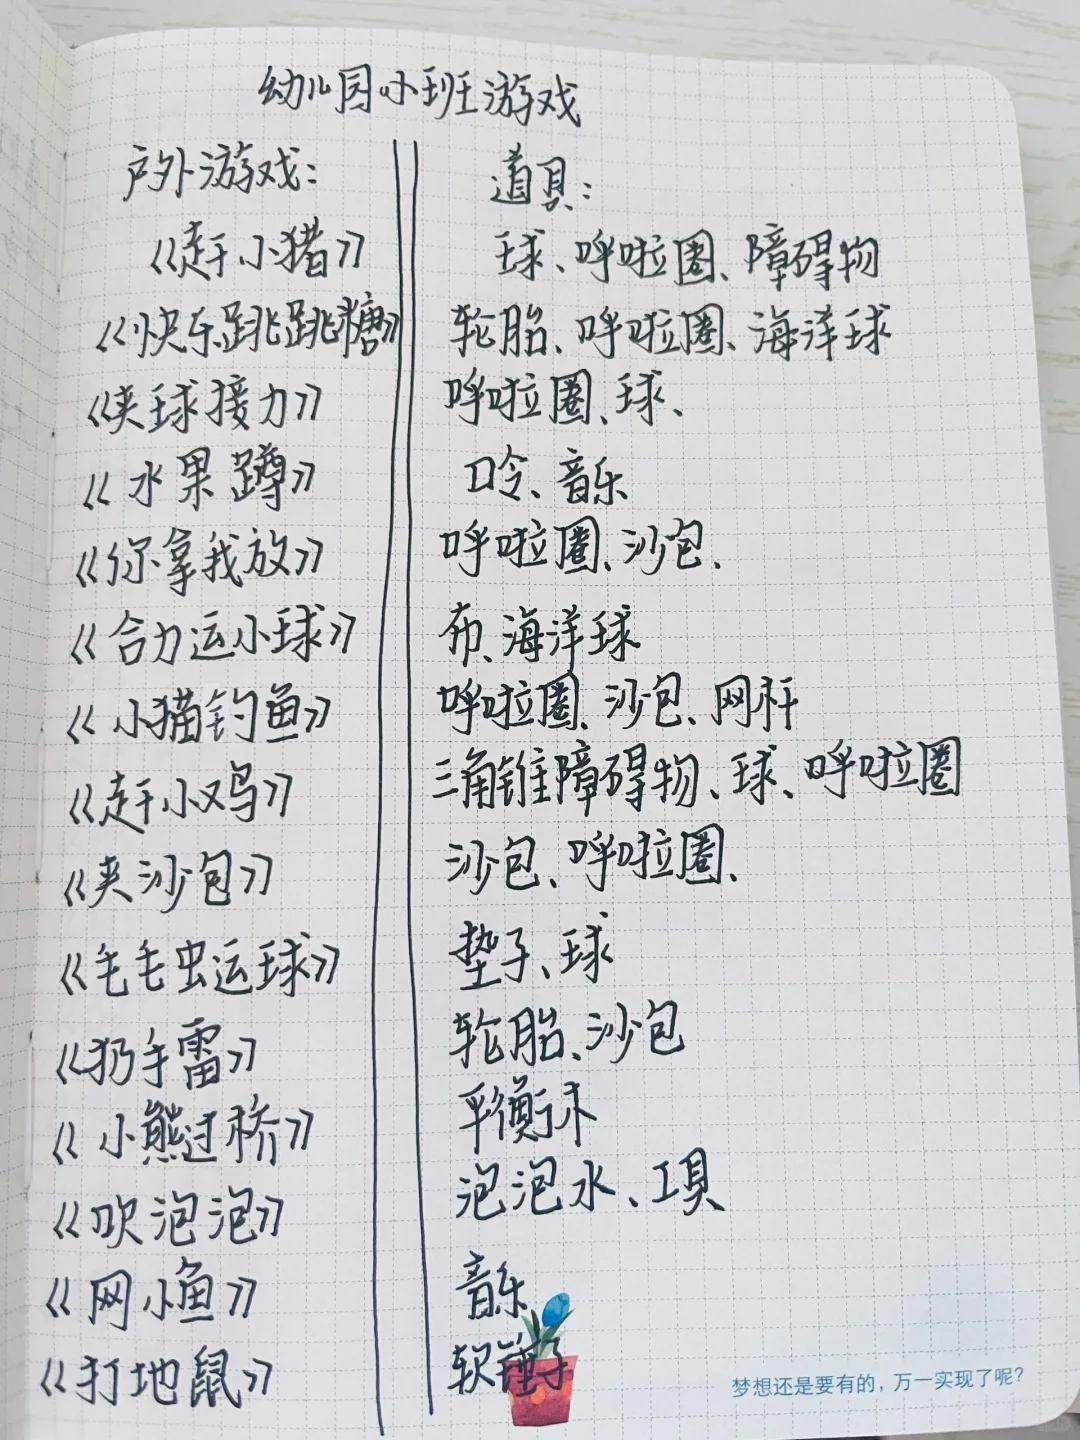 幼儿园小班游戏
户外游戏： 道具：
《赶小猪》 球、呼啦圈、障碍物
《快乐跳跳糖》 轮胎、呼啦圈、海洋球
《夹球接力》 呼啦圈、球、
《水果蹲》 口令、音乐
《你拿我放》 呼啦圈、沙包、
《合力运小球》 布、海洋球
《小猫钓鱼》 呼啦圈、沙包、网杆
《赶小鸡》 三角锥障碍物、球、呼啦圈
《夹沙包》 沙包、呼啦圈、
《毛毛虫运球》 垫子、球
《扔手雷》 轮胎、沙包
《小熊过桥》 平衡木
《吹泡泡》 泡泡水、工具
《网小鱼》 音乐
《打地鼠》 软锤子
梦想还是要有的，万一实现了呢？